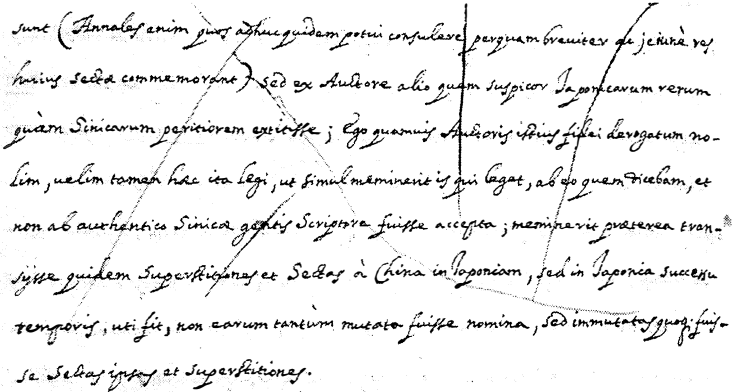 sunt (Annales enim quos adhuc quidem potui consulere perquam breviter ac jejunè res
huius sectæ commemorant) sed ex Auctore alio quem suspicor Iaponicarum rerum
quàm Sinicarum peritiorem extitisse; Ego quamuis Auctoris istius fidei derogatum no-
lim, uelim tamen hæc ita legi, ut simul meminerit is qui leget, ab eo quem dicebam, et
non ab authentico Sinicæ gentis Scriptore fuisse accepta; meminerit præterea tran-
sijsse quidem Superstitiones et Sectas à China in Iaponiam, sed in Iaponia successu
temporis, uti fit, non earum tantùm mutata fuisse nomina, sed immutatas quoq; fuis-
se Sectas ipsas et superstitiones.